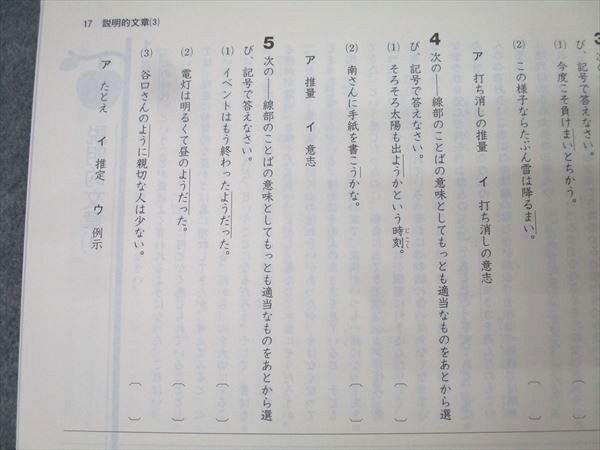 17 説明的文章(3)
び、記号で答えなさい。
(1) 今度こそ負けまいとちかう。〔 〕
(2) この様子ならたぶん雪は降るまい。〔 〕
ア 打ち消しの推量 イ 打ち消しの意志
4 次の――線部のことばの意味としてもっとも適当なものをあとから選
び、記号で答えなさい。
(1) そろそろ太陽も出ようかという時刻。〔 〕
じこく
(2) 南さんに手紙を書こうかな。〔 〕
ア 推量 イ 意志
5 次の――線部のことばの意味としてもっとも適当なものをあとから選
び、記号で答えなさい。
(1) イベントはもう終わったようだった。〔 〕
(2) 電灯は明るくて昼のようだった。〔 〕
(3) 谷口さんのように親切な人は少ない。〔 〕
ア たとえ イ 推定 ウ 例示